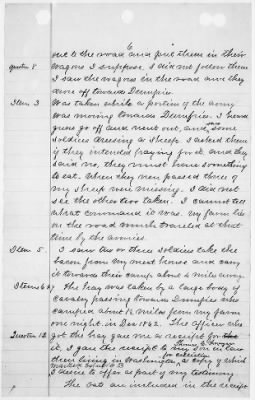 6
out to the road and put them in their
question 8 wagons I suppose, I did not follow them
I saw the wagons in the road and they
drove off toward Dumfries.
Item 3 Was taken while a portion of the army
was moving towards Dumfries. I heard
guns go off and went out, and saw some
soldiers dressing a sheep. I asked them
if they intended paying for it, and they
said no, they must have something
to eat. When they passed three of
my sheep were missing. I did not
see the other two taken. I cannot tell
what command it was. My farm lies
on the road much traveled at that
time by the armies.
Item 5. I saw two or three soldiers take the
bacon from my meat house and carry
it toward their camp about a mile away.
Items 6 & 7 The hay was taken by a large body of
Cavalry passing towards Dumfries who
camped about 1/2 miles from my farm
one night in Dec 1862. The Officer who
Question 13 got the hay gave me a receipt for
it, I gave the receipt to my son in law
then living in Washington, for collection a copy of which
marked Exhibit B
I desire to offer as part of my testimony
The oats are included in the receipt